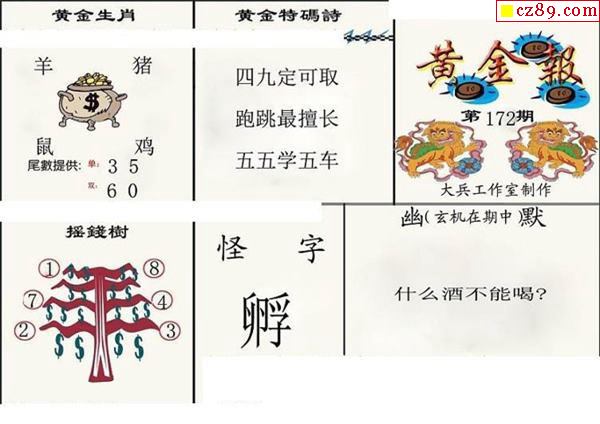 黄金生肖
羊 猪
鼠 鸡
尾數提供: 单: 3 5
双: 6 0
黄金特碼詩
四九定可取
跑跳最擅长
五五学五车
cz89.com
黄金報
第172期
大兵工作室制作
摇錢樹
① ⑧
⑦ ④
② ③
怪 字
孵
幽(玄机在期中)默
什么酒不能喝?